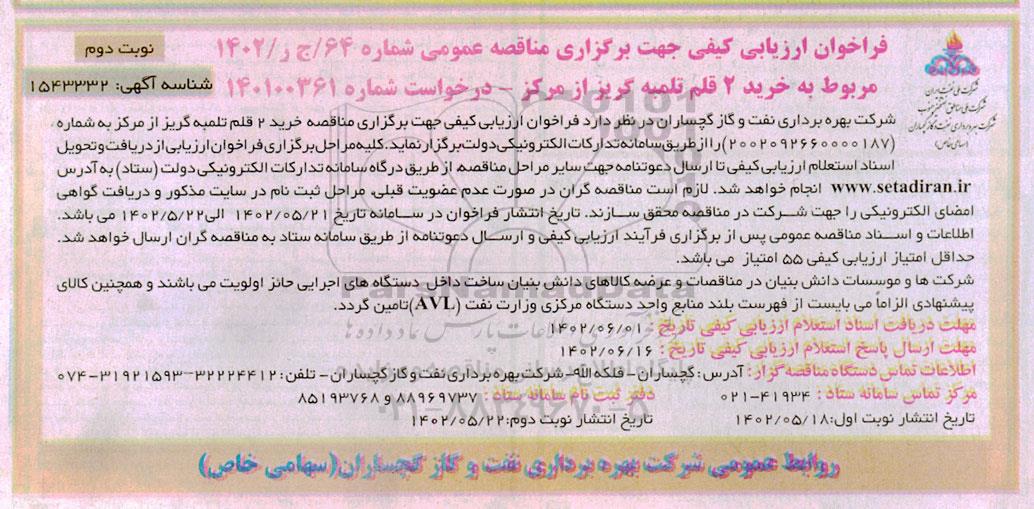 نوبت دوم
شناسه آگهی: ۱۵۴۳۲۳۲
فراخوان ارزیابی کیفی جهت برگزاری مناقصه عمومی شماره ۶۴/ج ر/۱۴۰۲
مربوط به خرید ۲ قلم تلمبه گریز از مرکز – درخواست شماره ۱۴۰۱۰۰۳۶۱
شرکت ملی نفت ایران
شرکت ملی مناطق نفتخیز جنوب
شرکت بهره برداری نفت و گاز گچساران
(سهامی خاص)
شرکت بهره برداری نفت و گاز گچساران در نظر دارد فراخوان ارزیابی کیفی جهت برگزاری مناقصه خرید ۲ قلم تلمبه گریز از مرکز به شماره
(۲۰۰۲۰۹۲۶۶۰۰۰۰۱۸۷) را از طریق سامانه تدارکات الکترونیکی دولت برگزار نماید. کلیه مراحل برگزاری فراخوان ارزیابی از دریافت و تحویل
اسناد استعلام ارزیابی کیفی تا ارسال دعوتنامه جهت سایر مراحل مناقصه از طریق درگاه سامانه تدارکات الکترونیکی دولت (ستاد) به آدرس
www.setadiran.ir انجام خواهد شد. لازم است مناقصه گران در صورت عدم عضویت قبلی، مراحل ثبت نام در سایت مذکور و دریافت گواهی
امضای الکترونیکی را جهت شرکت در مناقصه محقق سازند. تاریخ انتشار فراخوان در سامانه تاریخ ۱۴۰۲/۰۵/۲۱ الی ۱۴۰۲/۵/۲۲ می باشد.
اطلاعات و اسناد مناقصه عمومی پس از برگزاری فرآیند ارزیابی کیفی و ارسال دعوتنامه از طریق سامانه ستاد به مناقصه گران ارسال خواهد شد.
حداقل امتیاز ارزیابی کیفی ۵۵ امتیاز می باشد.
شرکت ها و موسسات دانش بنیان در مناقصات و عرضه کالاهای دانش بنیان ساخت داخل دستگاه های اجرایی حائز اولویت می باشند و همچنین کالای
پیشنهادی الزاماً می بایست از فهرست بلند منابع واحد دستگاه مرکزی وزارت نفت (AVL) تامین گردد.
مهلت دریافت اسناد استعلام ارزیابی کیفی تاریخ : ۱۴۰۲/۰۶/۰۱
مهلت ارسال پاسخ استعلام ارزیابی کیفی تاریخ : ۱۴۰۲/۰۶/۱۶
اطلاعات تماس دستگاه مناقصه گزار : آدرس: گچساران – فلکه الله – شرکت بهره برداری نفت و گاز گچساران – تلفن: ۳۲۲۲۴۴۱۲–۳۱۹۲۱۵۹۳–۰۷۴
مرکز تماس سامانه ستاد : ۴۱۹۳۴–۰۲۱ دفتر ثبت نام سامانه ستاد : ۸۸۹۶۹۷۳۷ و ۸۵۱۹۳۷۶۸
تاریخ انتشار نوبت اول: ۱۴۰۲/۰۵/۱۸ تاریخ انتشار نوبت دوم: ۱۴۰۲/۰۵/۲۲
روابط عمومی شرکت بهره برداری نفت و گاز گچساران (سهامی خاص)